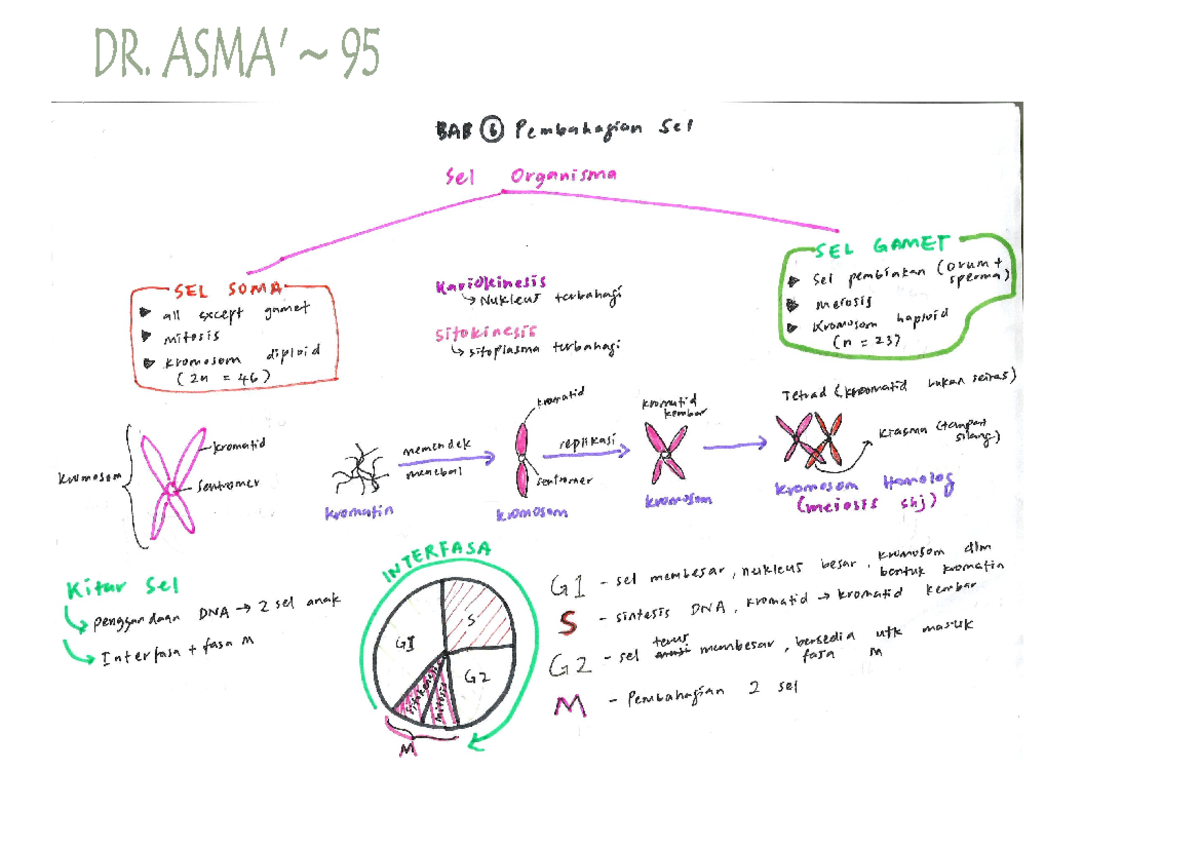 DR. ASMA' ~ 95
BAB 6 Pembahagian Sel
Sel Organisma
SEL SOMA
all except gamet
mitosis
kromosom diploid
(2n = 46)
Kariokinesis
Nukleus terbahagi
Sitokinesis
sitoplasma terbahagi
SEL GAMET
Sel pembiakan (ovum +
sperma)
meiosis
Kromosom haploid
(n = 23)
kromosom
kromatid
sentromer
kromatin
memendek
menebal
kromatid
sentromer
kromosom
replikasi
kromatid
kembar
kromosom
Tetrad (kromatid bukan seiras)
kiasma (tempat
silang)
kromosom Homolog
(meiosis shj)
Kitar Sel
penggandaan DNA → 2 sel anak
Interfasa + fasa M
INTERFASA
G1
S
G2
sitokinesis
mitosis
M
G1 - sel membesar, nukleus besar, kromosom dlm
bentuk kromatin
S - sintesis DNA, kromatid → kromatid kembar
G2 - sel terus membesar, bersedia utk masuk
fasa M
M - Pembahagian 2 sel